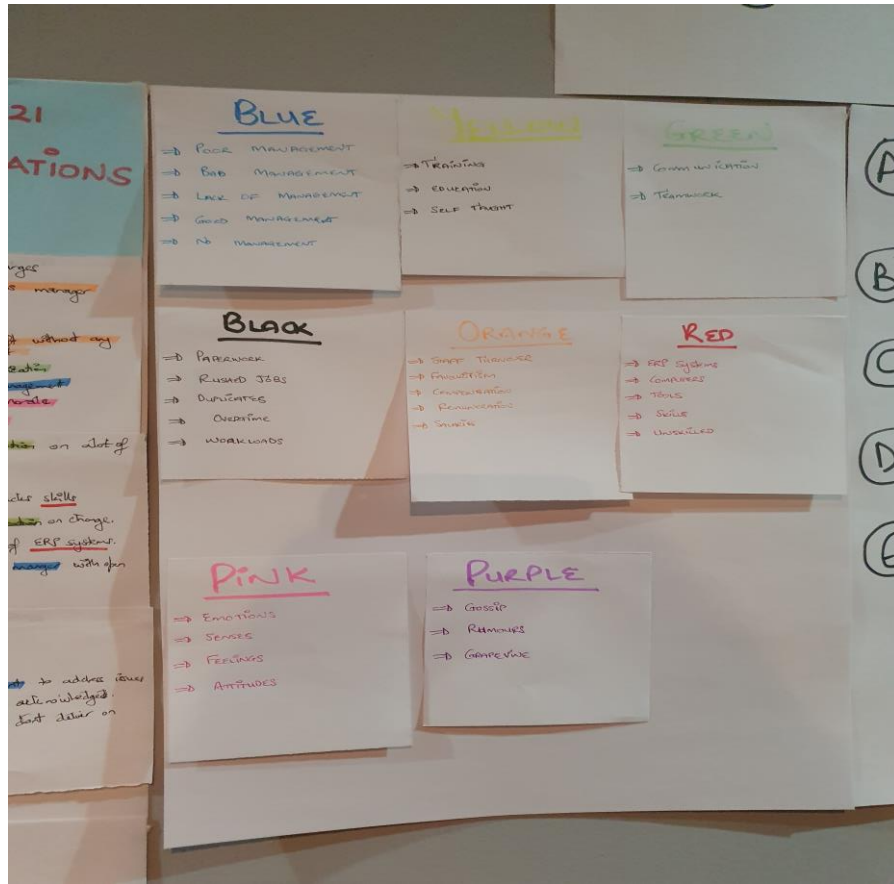 21
ATIONS
manager
without any
on alot of
skills
on change.
of ERP systems.
with open
to address issues
acknowledged.
on
BLUE
⇒ POOR MANAGEMENT
⇒ BAD MANAGEMENT
⇒ LACK OF MANAGEMENT
⇒ GOOD MANAGEMENT
⇒ NO MANAGEMENT
YELLOW
⇒ TRAINING
⇒ EDUCATION
⇒ SELF TAUGHT
GREEN
⇒ COMMUNICATION
⇒ TEAMWORK
BLACK
⇒ PAPERWORK
⇒ RUSHED JOBS
⇒ DUPLICATES
⇒ OVERTIME
⇒ WORKLOADS
ORANGE
⇒ STAFF TURNOVER
⇒ FAVOURITISM
⇒ COMPENSATION
⇒ REMUNERATION
RED
⇒ ERP SYSTEMS
⇒ COMPUTERS
⇒ TOOLS
⇒ SKILLS
⇒ UNSKILLED
PINK
⇒ EMOTIONS
⇒ SENSES
⇒ FEELINGS
⇒ ATTITUDES
PURPLE
⇒ GOSSIP
⇒ RUMOURS
⇒ GRAPEVINE
A
B
C
D
E